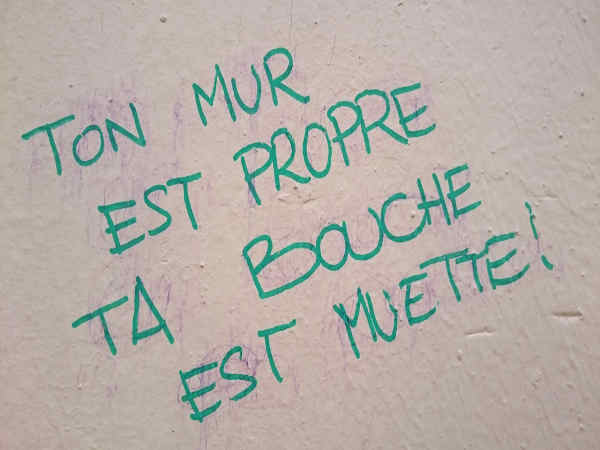 TON MUR
EST PROPRE
TA BOUCHE
EST MUETTE!